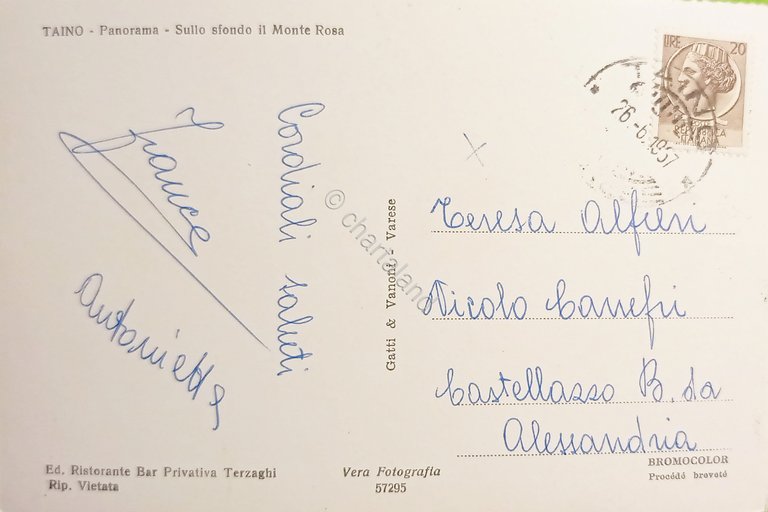 TAINO - Panorama - Sullo sfondo il Monte Rosa
LIRE 20
REPVBBLICA
ITALIANA
26.6.1957
Cordiali saluti
Franca
Antonietta
© chartaland
Gatti & Vanoni - Varese
Teresa Alfieri
Nicolo Canefri
Castellazzo B.da
Alessandria
Ed. Ristorante Bar Privativa Terzaghi
Rip. Vietata
Vera Fotografia
57295
BROMOCOLOR
Procédé breveté